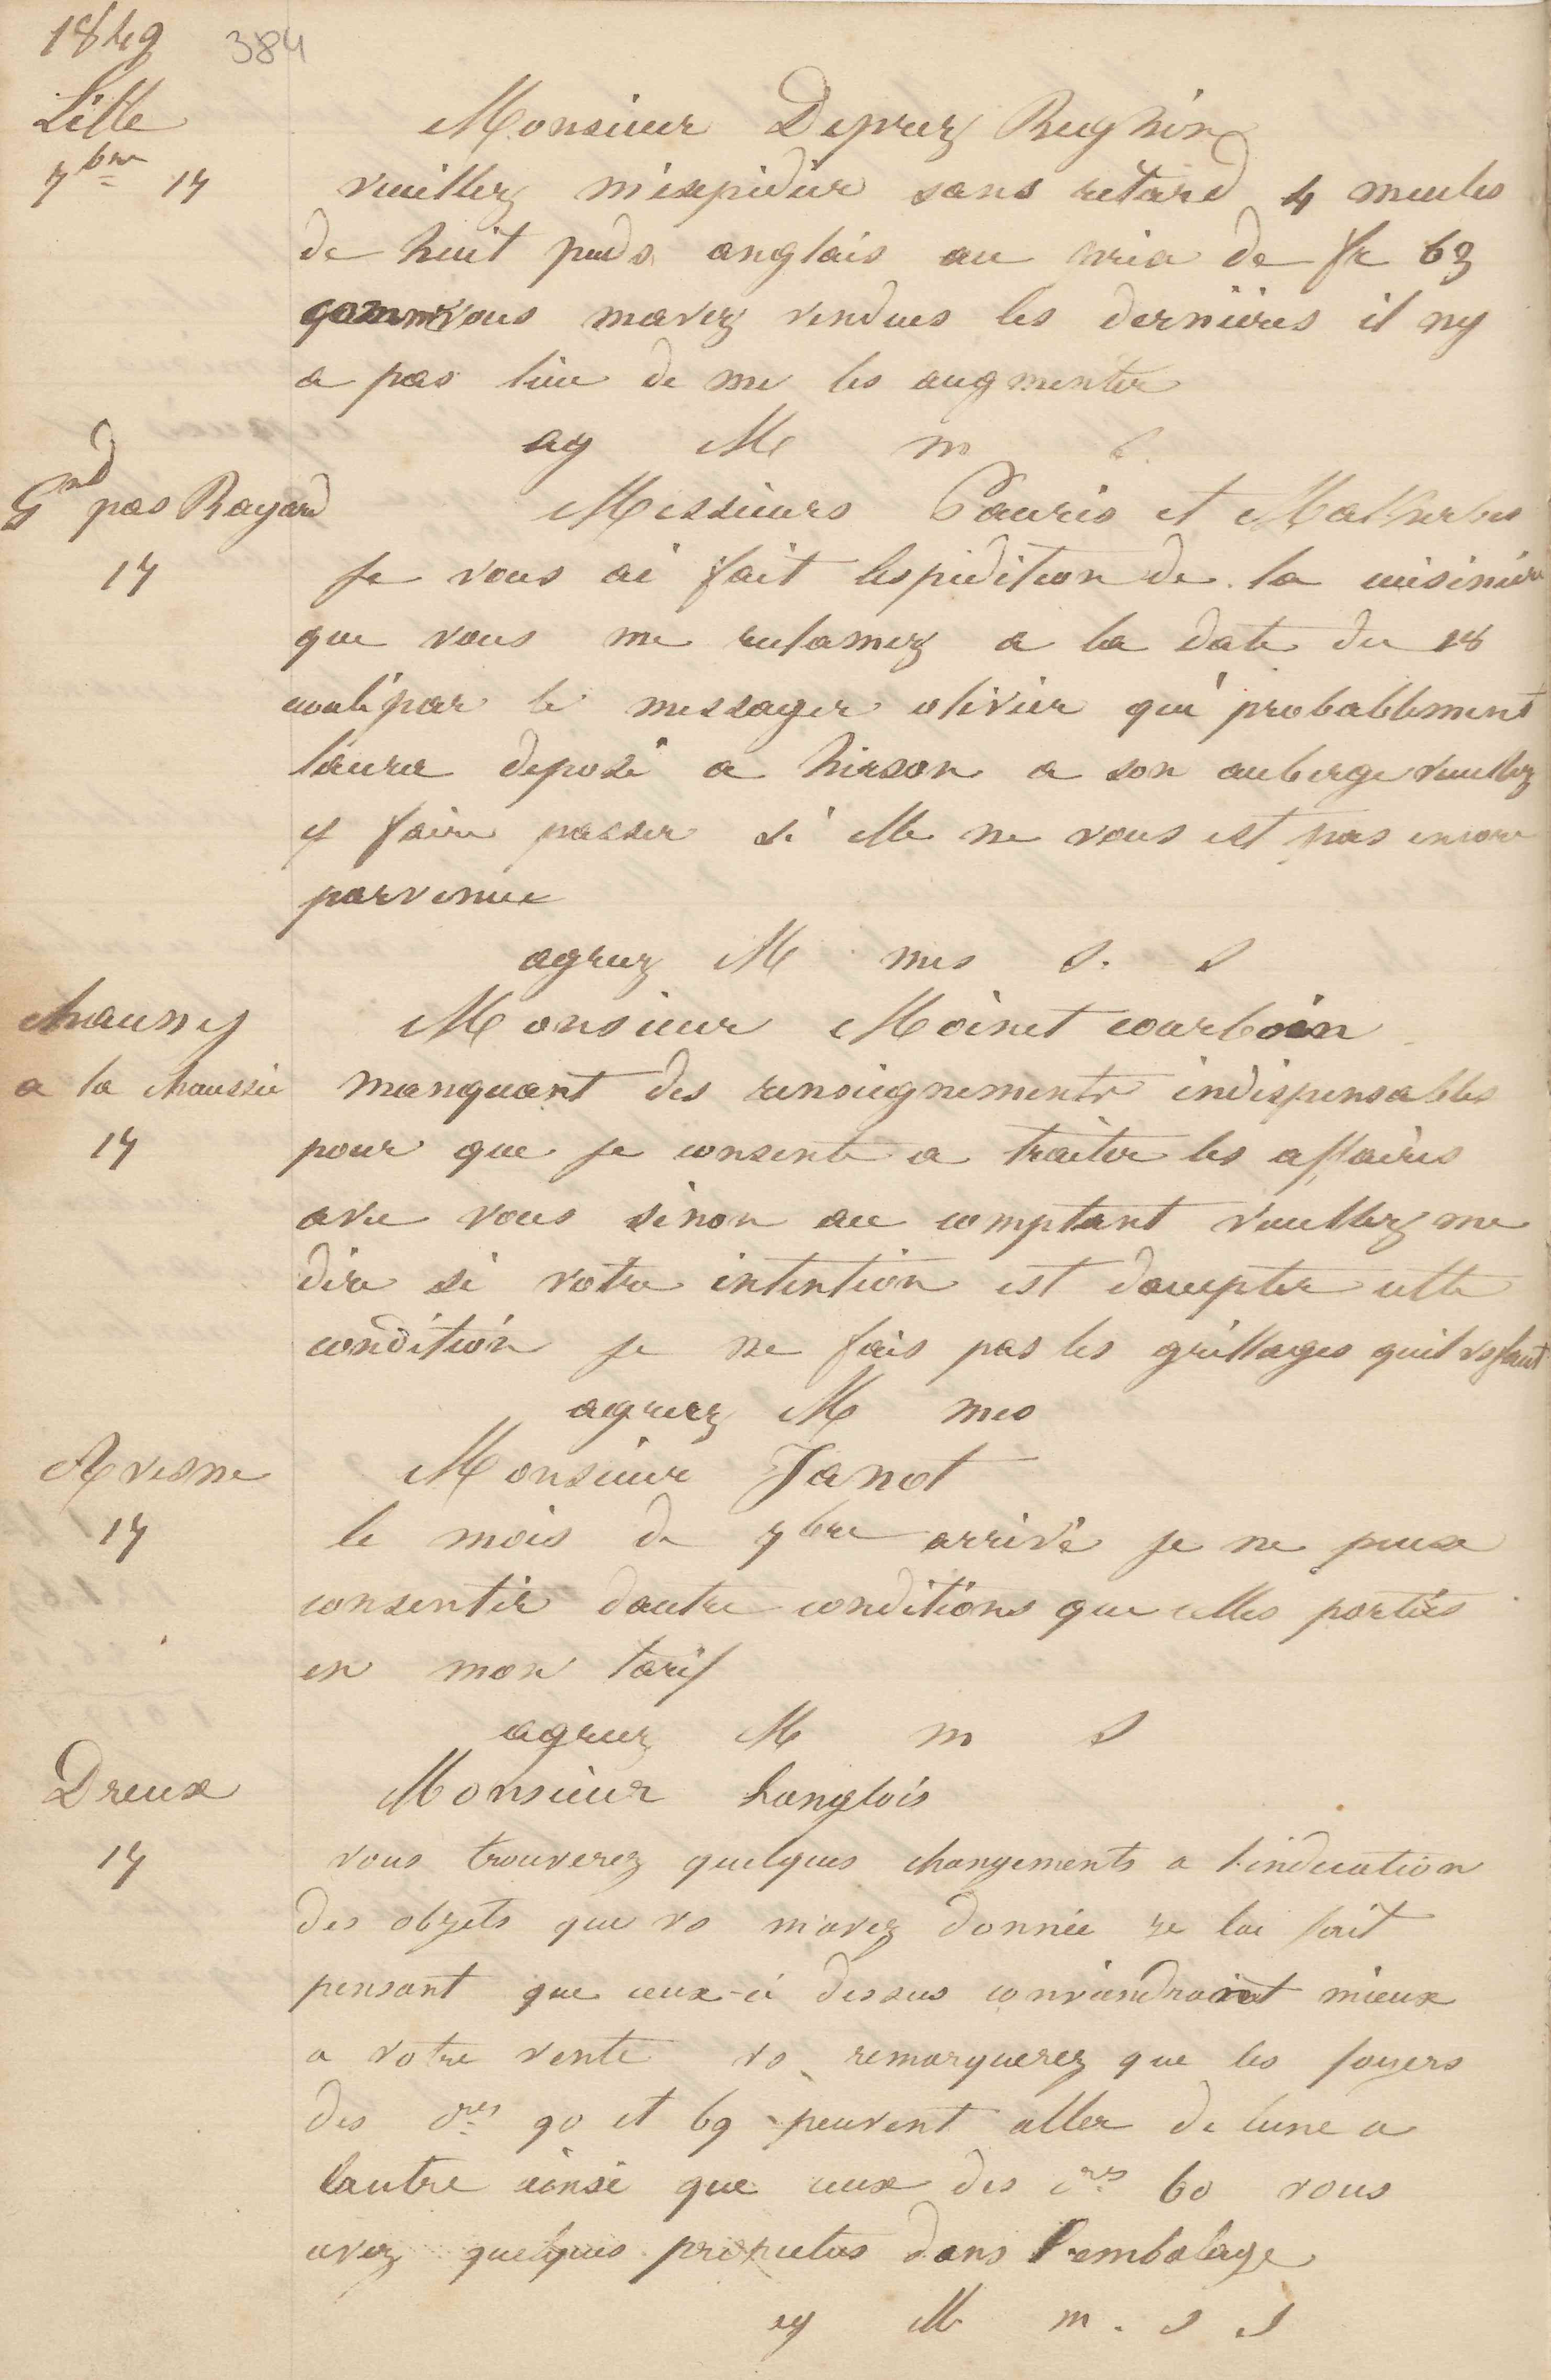 1849 384
Lille
7bre 17
Monsieur Deprez Reghin
veuillez m'expedier sans retard 4 meules
de huit pieds anglais au prix de fr 63
comme vous mavez vendues les dernières il ny
a pas lieu de me les augmenter
ag M m
Gnd pas Bayard
17
Messieurs Pauris et Malherbes
Je vous ai fait lespedition de la cuisinière
que vous me reclamez a la date du 18
coulé par le messager olivier qui probablement
laura deposé a hirson a son auberge veuillez
y faire passer si elle ne vous est pas encore
parvenue
agreez M mes S. S
Chauny
a la chaussée
17
Monsieur Moinet courboin
manquant des renseignements indispensables
pour que je consente a traiter les affaires
avec vous sinon au comptant veuillez me
dire si votre intention est daccepter cette
condition je ne fais pas les grillages quil vs faut
agreez M mes
Avesne
17
Monsieur Janot
le mois de 7bre arrivé je ne peux
consentir dautre conditions que celles portées
en mon tarif
agreez M m S
Dreux
17
Monsieur Langlois
vous trouverez quelques changements a l'indication
des objets que vs m'avez donnée je lai fait
pensant que ceux-ci dessus conviendraient mieux
a votre vente vs remarquerez que les foyers
des 90 et 69 peuvent aller de lune a
lautre ainsi que ceux des 60 vous
avez quelques dans l'embalage
ag M m. S S